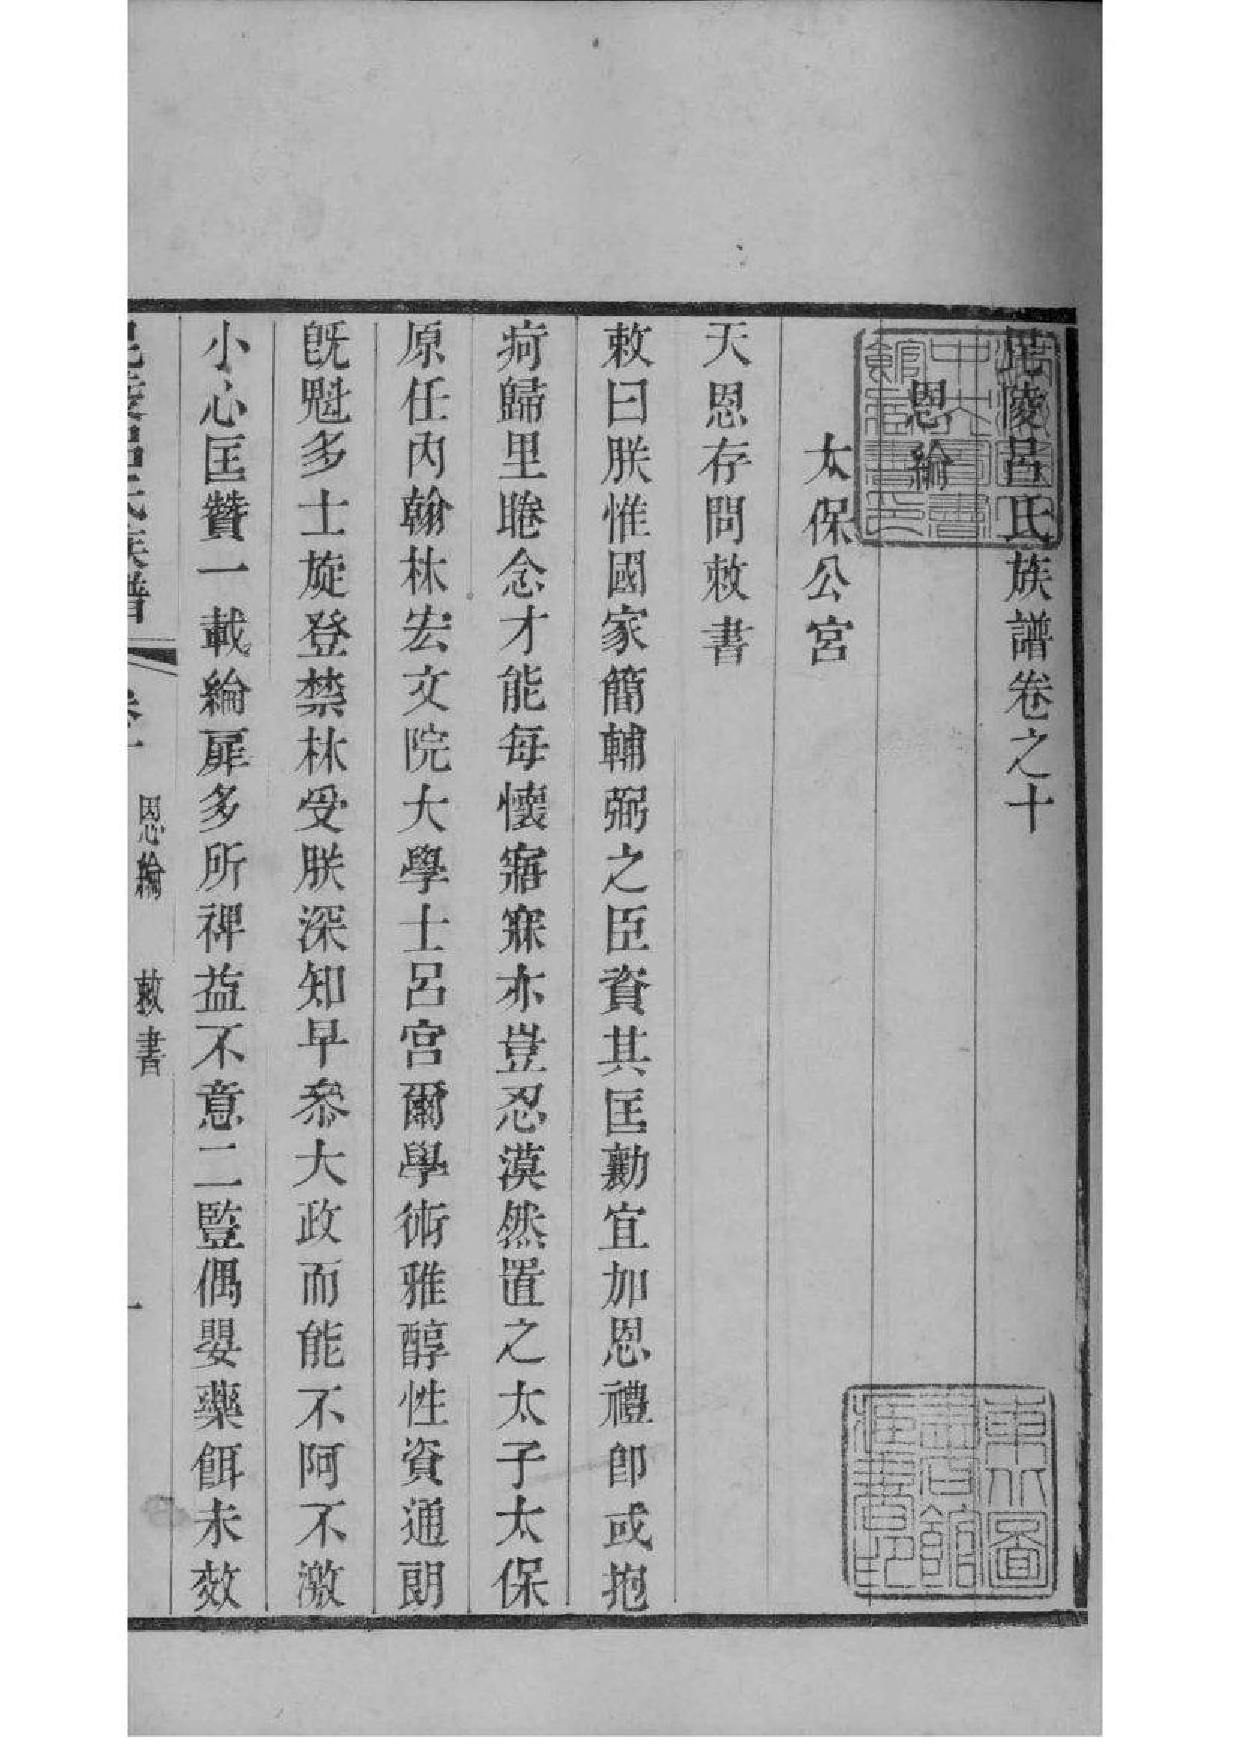 毘陵呂氏族譜卷之十
恩綸
太保公宮
天恩存問敕書
敕曰朕惟國家簡輔弼之臣資其匡勷宜加恩禮卽或抱
疴歸里睠念才能每懷寤寐亦豈忍漠然置之太子太保
原任內翰林宏文院大學士呂宮爾學術雅醇性資通朗
旣魁多士旋登禁林受朕深知早叅大政而能不阿不激
小心匡贊一載綸扉多所裨益不意二豎偶嬰藥餌未效
毘陵呂氏族譜
恩綸
敕書
一